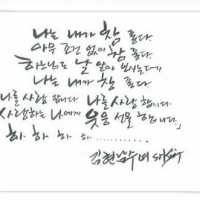 나는 내가 참 좋다.
아무 조건 없이 참 좋다.
하느님도 날 알아 보시는데
나는 내가 참 좋다.
나를 사랑 합니다. 나를 사랑 합니다.
사랑하는 나에게 웃음 선물 합니다.
하 하 하 하 ............
김현남